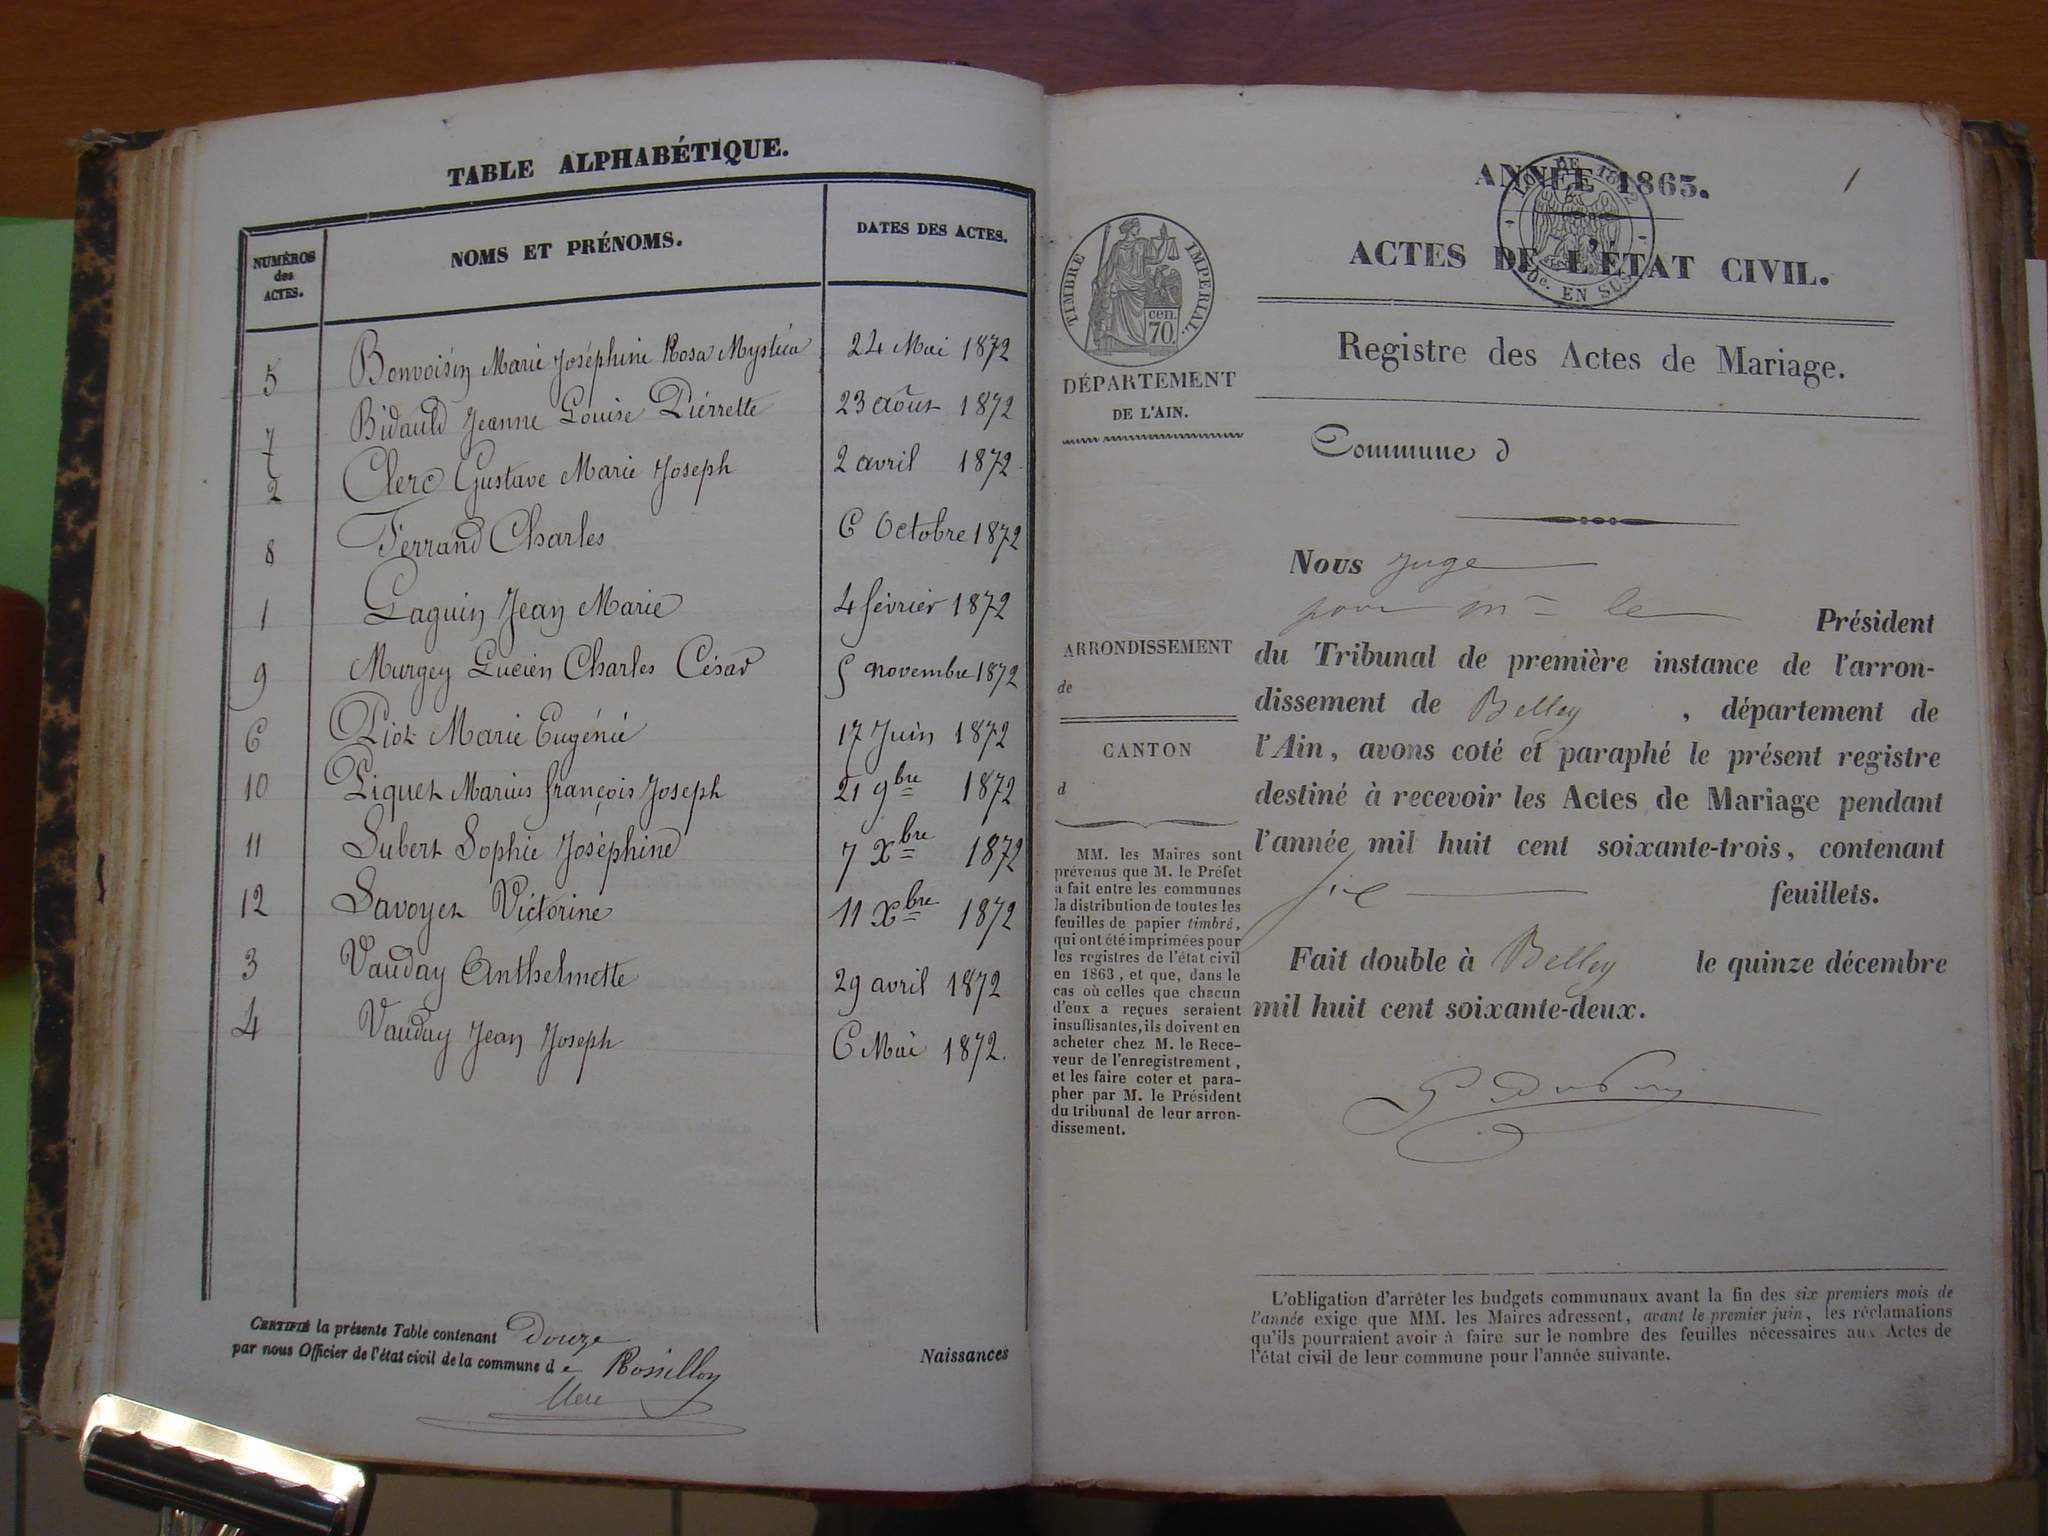 TABLE ALPHABÉTIQUE.
NUMÉROS des ACTES. NOMS ET PRÉNOMS. DATES DES ACTES.
5 Bonvoisin Marie Joséphine Rosa Mystica 24 Mai 1872
7 Bidauld Jeanne Louise Piérrette 23 août 1872
2 Clerc Gustave Marie Joseph 2 avril 1872
8 Ferrand Charles 6 Octobre 1872
1 Laguin Jean Marie 4 février 1872
9 Murgey Lucien Charles César 5 novembre 1872
6 Piot Marie Eugénie 17 Juin 1872
10 Piquet Marius françois Joseph 21 9bre 1872
11 Subert Sophie Joséphine 7 Xbre 1872
12 Savoyet Victorine 11 Xbre 1872
3 Vauday Anthelmette 29 avril 1872
4 Vauday Jean Joseph 6 Mai 1872.
CERTIFIÉ la présente Table contenant Douze Naissances
par nous Officier de l'état civil de la commune de Rossillon
Clerc
1
ANNÉE 1863.
ACTES DE L'ÉTAT CIVIL.
Registre des Actes de Mariage.
TIMBRE IMPÉRIAL.
70. cen.
LOI DE 1862
EN SUS
DÉPARTEMENT
DE L'AIN.
ARRONDISSEMENT
de
CANTON
d
MM. les Maires sont
prévenus que M. le Préfet
a fait entre les communes
la distribution de toutes les
feuilles de papier timbré,
qui ont été imprimées pour
les registres de l'état civil
en 1863, et que, dans le
cas où celles que chacun
d'eux a reçues seraient
insuffisantes, ils doivent en
acheter chez M. le Rece-
veur de l'enregistrement,
et les faire coter et para-
pher par M. le Président
du tribunal de leur arron-
dissement.
Commune d
Nous Juge
pour Mr le Président
du Tribunal de première instance de l'arron-
dissement de Belley, département de
l'Ain, avons coté et paraphé le présent registre
destiné à recevoir les Actes de Mariage pendant
l'année mil huit cent soixante-trois, contenant
six feuillets.
Fait double à Belley le quinze décembre
mil huit cent soixante-deux.
L'obligation d'arrêter les budgets communaux avant la fin des six premiers mois de
l'année exige que MM. les Maires adressent, avant le premier juin, les réclamations
qu'ils pourraient avoir à faire sur le nombre des feuilles nécessaires aux Actes de
l'état civil de leur commune pour l'année suivante.